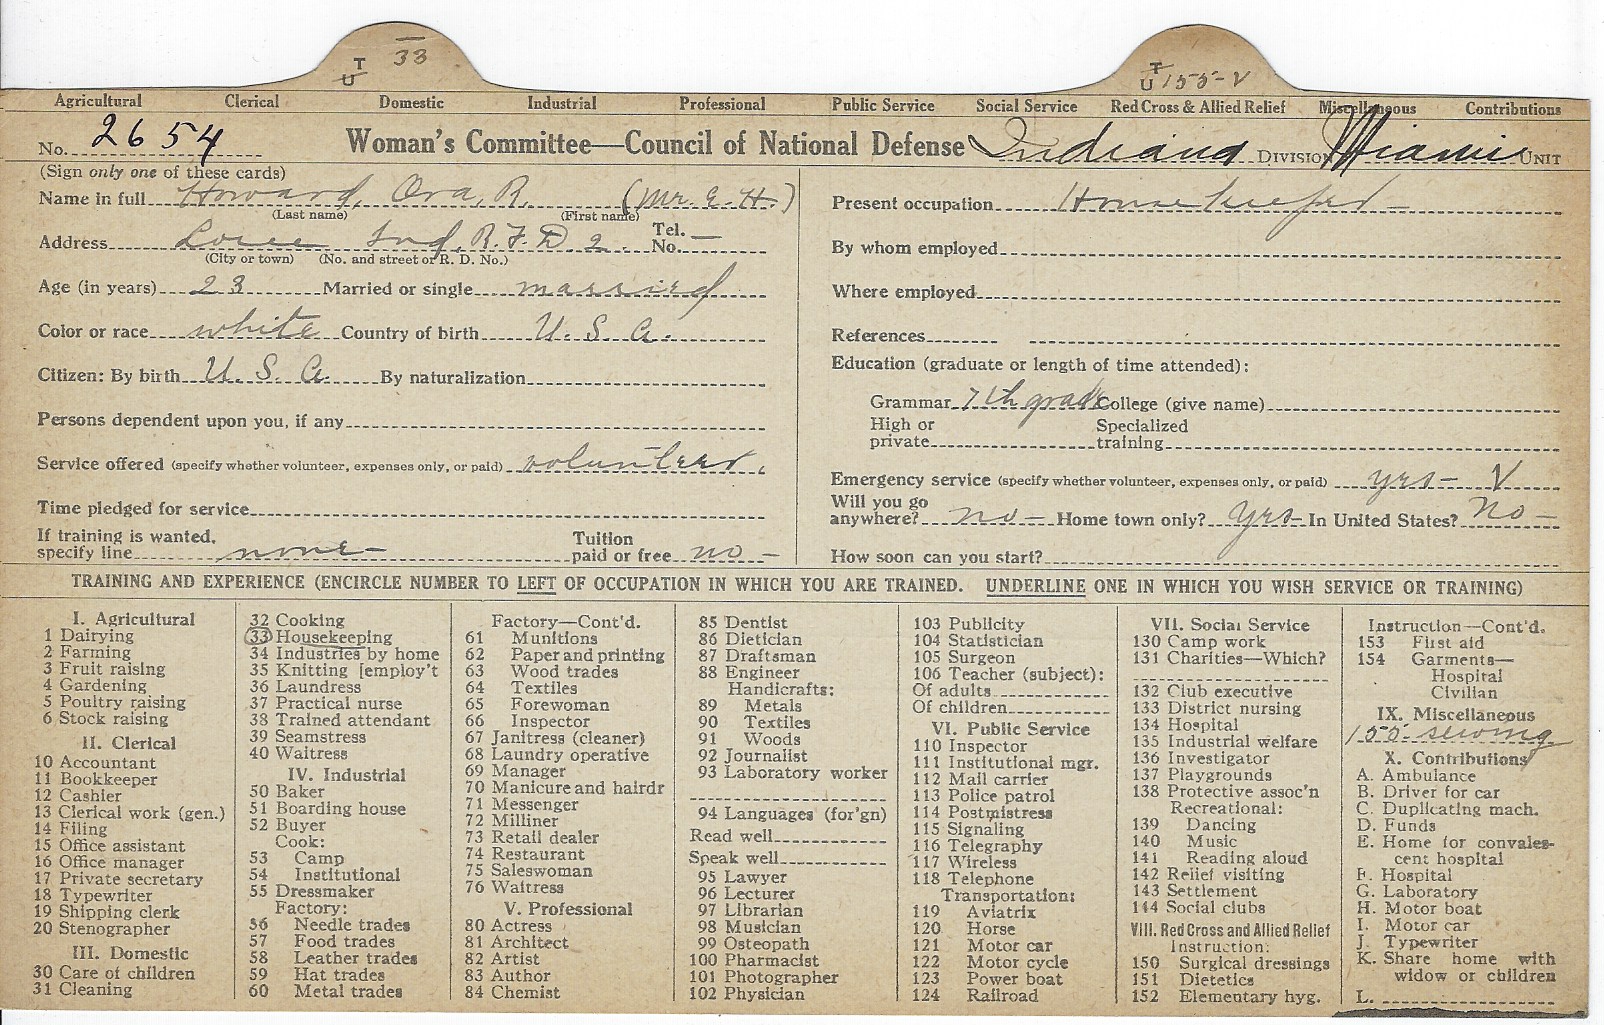 T
U 33
T
U 155-V
Agricultural Clerical Domestic Industrial Professional Public Service Social Service Red Cross & Allied Relief Miscellaneous Contributions
No. 2654 Woman's Committee—Council of National Defense Indiana DIVISION Miami UNIT
(Sign only one of these cards)
Name in full Howard, Ora, R. (Mr. E. H.)
(Last name) (First name)
Address Loree Ind, R. F. D 2. Tel. No. —
(City or town) (No. and street or R. D. No.)
Age (in years) 23 Married or single married
Color or race white Country of birth U. S. a.
Citizen: By birth U. S. a. By naturalization
Persons dependent upon you, if any
Service offered (specify whether volunteer, expenses only, or paid) volunteer.
Time pledged for service
If training is wanted, specify line none — Tuition paid or free no —
Present occupation Housekeeper —
By whom employed
Where employed
References
Education (graduate or length of time attended):
Grammar 7th grade College (give name)
High or private Specialized training
Emergency service (specify whether volunteer, expenses only, or paid) yes — V
Will you go anywhere? no — Home town only? Yes — In United States? No —
How soon can you start?
TRAINING AND EXPERIENCE (ENCIRCLE NUMBER TO LEFT OF OCCUPATION IN WHICH YOU ARE TRAINED. UNDERLINE ONE IN WHICH YOU WISH SERVICE OR TRAINING)
I. Agricultural
1 Dairying
2 Farming
3 Fruit raising
4 Gardening
5 Poultry raising
6 Stock raising
II. Clerical
10 Accountant
11 Bookkeeper
12 Cashier
13 Clerical work (gen.)
14 Filing
15 Office assistant
16 Office manager
17 Private secretary
18 Typewriter
19 Shipping clerk
20 Stenographer
III. Domestic
30 Care of children
31 Cleaning
32 Cooking
33 Housekeeping
34 Industries by home
35 Knitting [employ't
36 Laundress
37 Practical nurse
38 Trained attendant
39 Seamstress
40 Waitress
IV. Industrial
50 Baker
51 Boarding house
52 Buyer
Cook:
53 Camp
54 Institutional
55 Dressmaker
Factory:
56 Needle trades
57 Food trades
58 Leather trades
59 Hat trades
60 Metal trades
Factory—Cont'd.
61 Munitions
62 Paper and printing
63 Wood trades
64 Textiles
65 Forewoman
66 Inspector
67 Janitress (cleaner)
68 Laundry operative
69 Manager
70 Manicure and hairdr
71 Messenger
72 Milliner
73 Retail dealer
74 Restaurant
75 Saleswoman
76 Waitress
V. Professional
80 Actress
81 Architect
82 Artist
83 Author
84 Chemist
85 Dentist
86 Dietician
87 Draftsman
88 Engineer
Handicrafts:
89 Metals
90 Textiles
91 Woods
92 Journalist
93 Laboratory worker
94 Languages (for'gn)
Read well
Speak well
95 Lawyer
96 Lecturer
97 Librarian
98 Musician
99 Osteopath
100 Pharmacist
101 Photographer
102 Physician
103 Publicity
104 Statistician
105 Surgeon
106 Teacher (subject):
Of adults
Of children
VI. Public Service
110 Inspector
111 Institutional mgr.
112 Mail carrier
113 Police patrol
114 Postmistress
115 Signaling
116 Telegraphy
117 Wireless
118 Telephone
Transportation:
119 Aviatrix
120 Horse
121 Motor car
122 Motor cycle
123 Power boat
124 Railroad
VII. Social Service
130 Camp work
131 Charities—Which?
132 Club executive
133 District nursing
134 Hospital
135 Industrial welfare
136 Investigator
137 Playgrounds
138 Protective assoc'n
Recreational:
139 Dancing
140 Music
141 Reading aloud
142 Relief visiting
143 Settlement
144 Social clubs
VIII. Red Cross and Allied Relief
Instruction:
150 Surgical dressings
151 Dietetics
152 Elementary hyg.
Instruction—Cont'd.
153 First aid
154 Garments—
Hospital
Civilian
IX. Miscellaneous
155- sewing
X. Contributions
A. Ambulance
B. Driver for car
C. Duplicating mach.
D. Funds
E. Home for convales-
cent hospital
F. Hospital
G. Laboratory
H. Motor boat
I. Motor car
J. Typewriter
K. Share home with
widow or children
L.